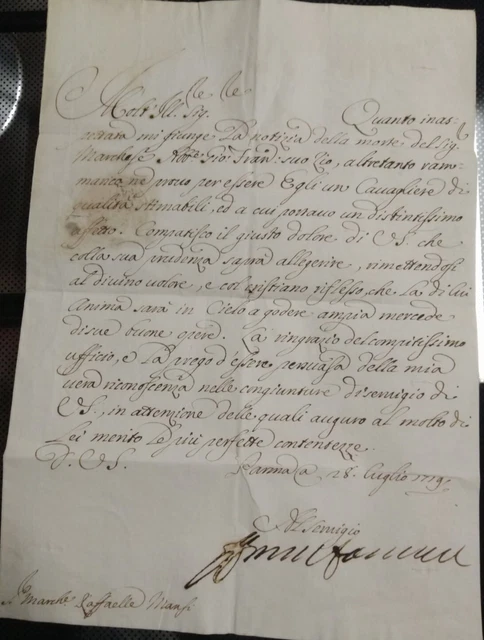 Molt' Ill. Sig.re
Quanto inas-
pettata mi giunge La notizia della morte del Sig.
Marchese Abb.e Gio: Fran: suo Zio, altretanto ram-
marico ne provo per essere Egli un Cavagliere di
qualità stimabili, ed a cui portavo un distintissimo
affetto. Compatisco il giusto dolore di V.S. che
colla sua prudenza saprà allegerire, rimettendosi
al divino volere, e col cristiano riflesso, che La di Lui
Anima sarà in Cielo a godere ampia mercede
di sue buone opere. La ringrazio del compitissimo
ufficio, e La prego d'essere persuasa della mia
vera riconoscenza nelle congiunture di servigio di
V.S., in attenzione delle quali auguro al molto di
Lei merito Le più perfette contentezze.
D. V.S.
Parma a 28. Luglio 1719.
Al servigio
S. Marche Raffaelle Mansi